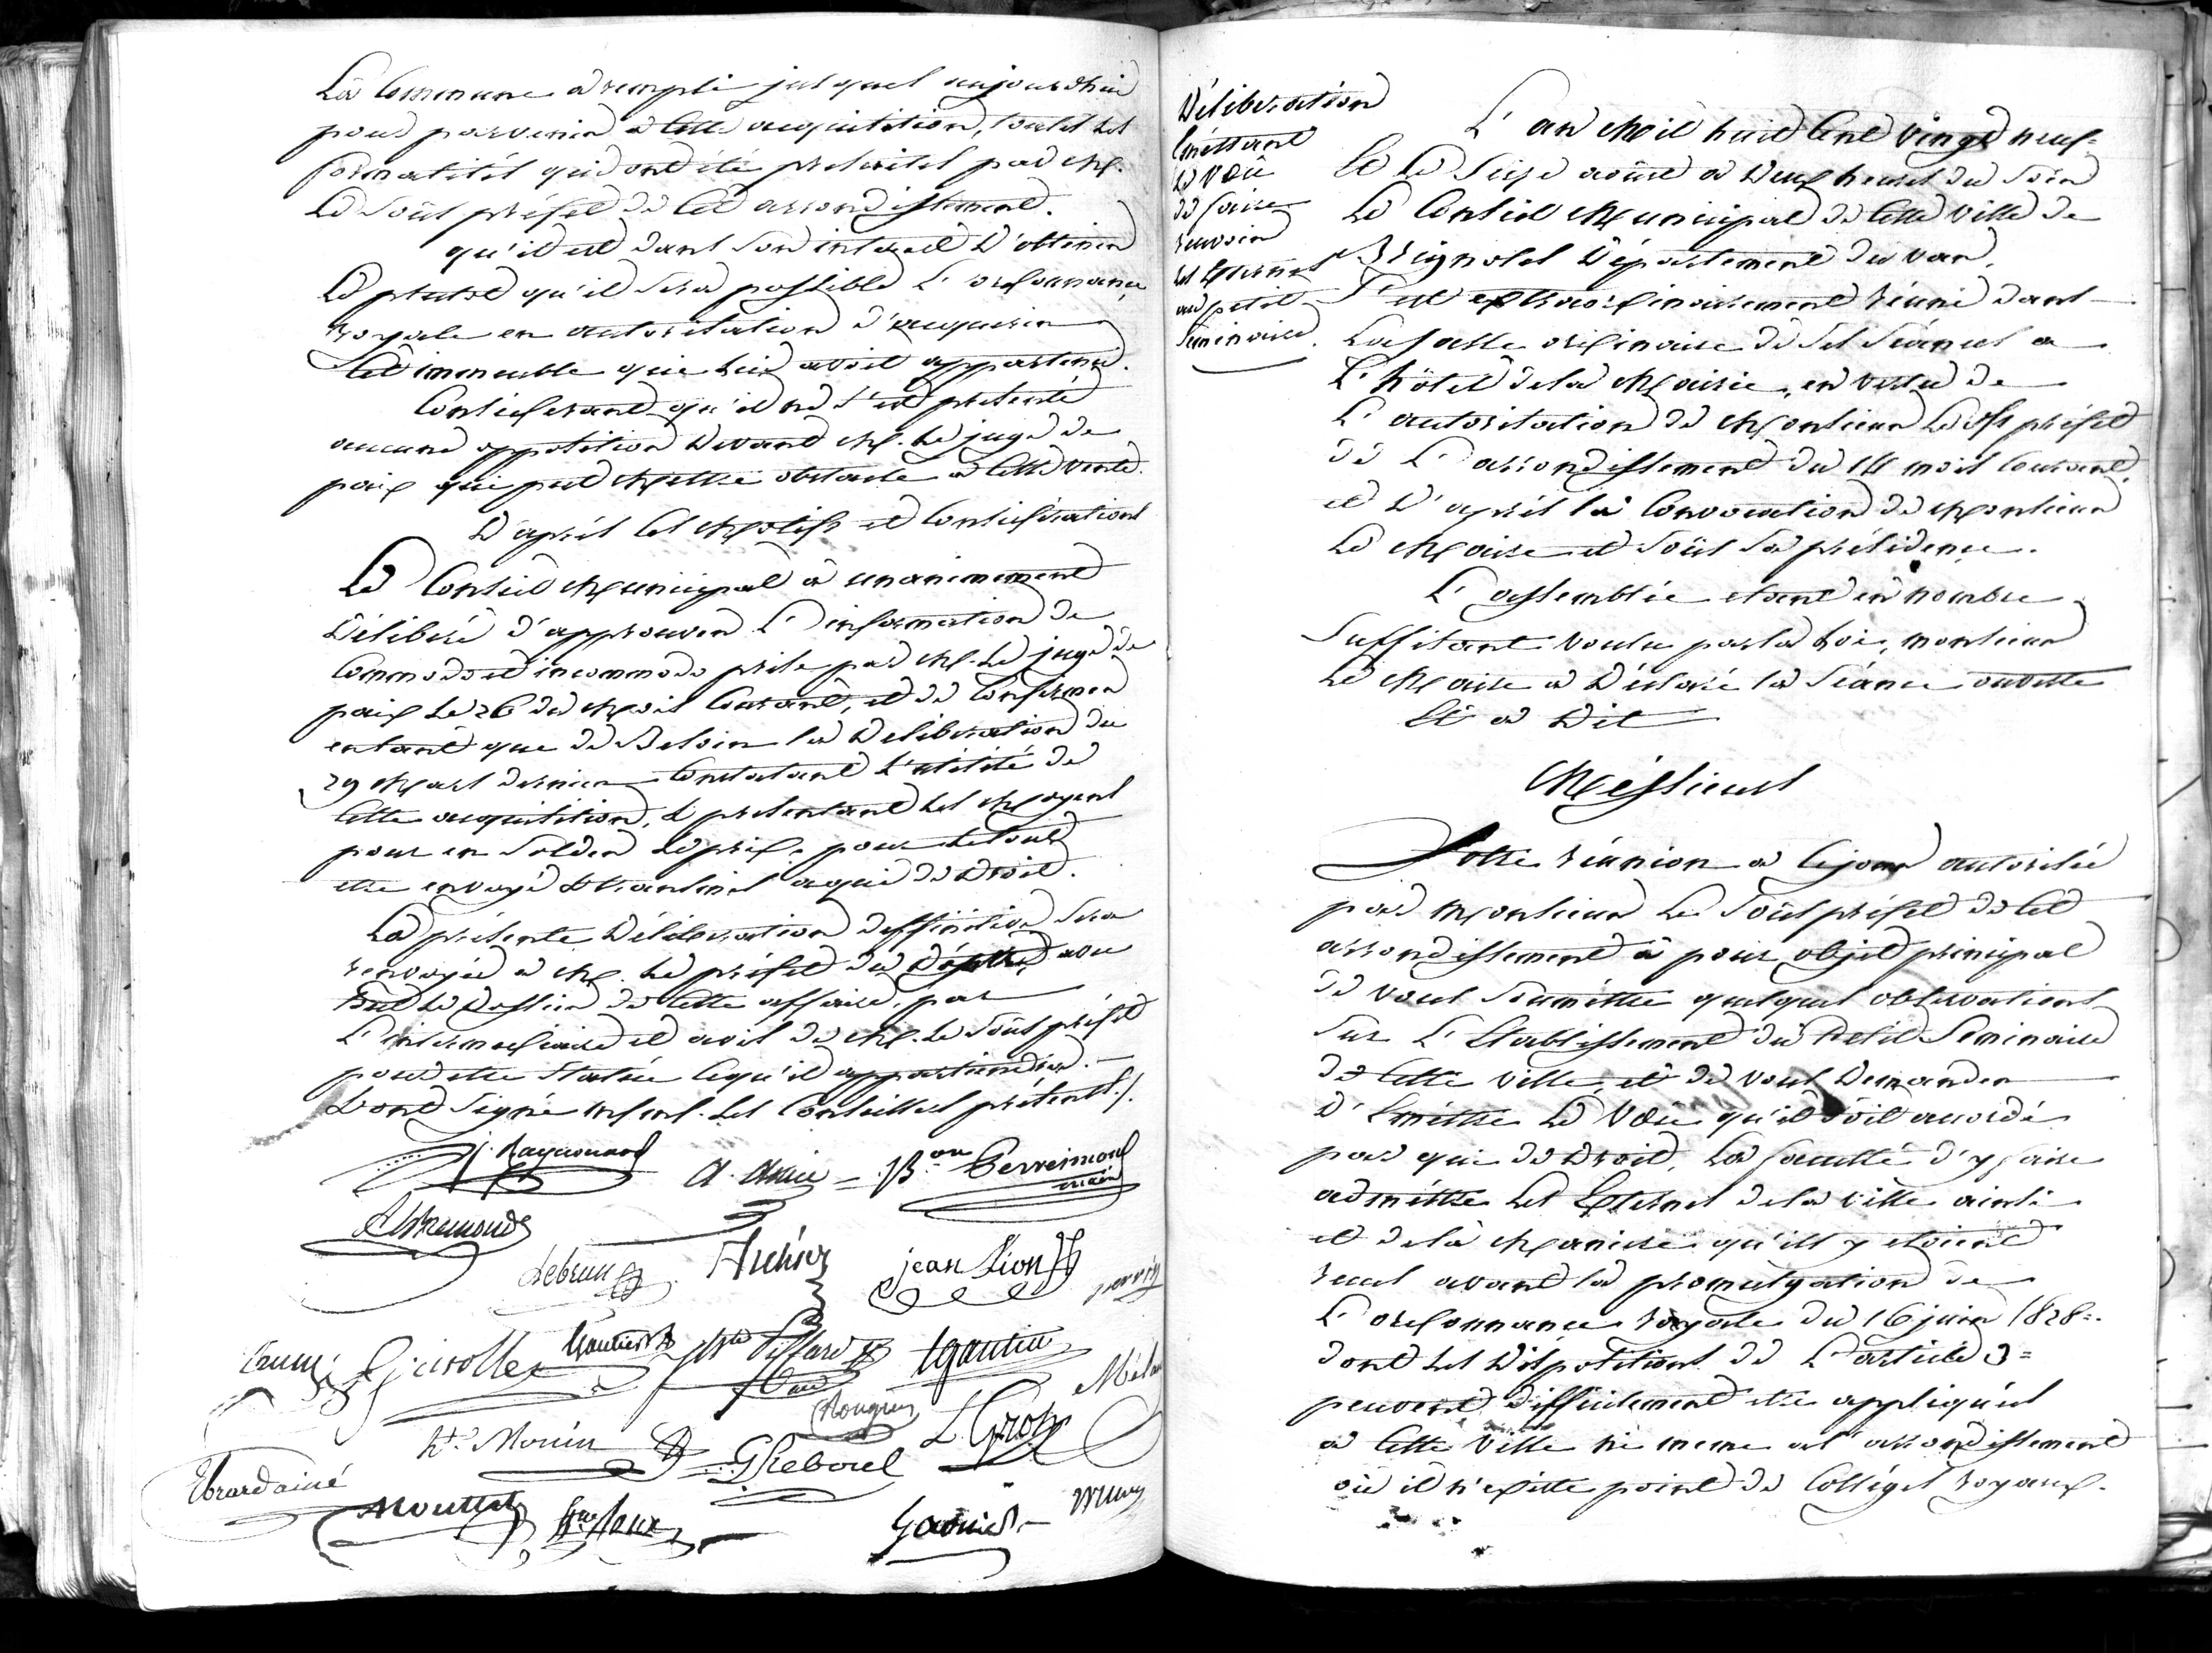 La Commune a rempli jusques aujourdhui
pour parvenir a cette acquisition, toutes les
formalités qui ont été prescrites par M.
Le Sous préfet de cet arrondissement.
qu'il est dans son interet d'obtenir
le plutot qu'il sera possible l'ordonnance
royale en autorisation d'acquerir
cet immeuble qui lui avoit appartenu.
Considerant qu'il ne s'est presenté
aucune opposition devant M. le juge de
paix qui put mettre obstacle a cette vente.
D'après ces Motifs et Considérations
Le Conseil Municipal a unanimement
Déliberé d'approuver l'information de
Commodo et incommodo prise par M. le juge de
paix le 26 du Mois Courant, et de Confirmer
entant que de Besoin la Deliberation du
29 Mars dernier Constatant l'utilité de
cette acquisition, & presentant les Moyens
pour en solder le prix, pour letout
etre envoyé & transmis a qui de Droit.
La présente Délibération deffinitive sera
renvoyée a M. le préfet du Départt. avec
tout le Dossier de cette affaire, par
L'intermediaire et avis de M. le Sous préfet
pour etre statué cequ'il appartiendra.
& ont Signé Mrs. les Conseillers présents./.
J. Raynouard A. Amic Bon Gerreimond maire
Lebrun Archier jean Lion
Girolle Gautier
Rougier L. Gros
hte. Monin G Reboul
Ebrard ainé
Mouttet Garnier
Déliberation
Emettant
le Vœu
de faire
recevoir
les Externes
au petit
Séminaire.
L'an Mil huit Cent vingt neuf
et le Seize août a Deux heures du Soir
Le Conseil Municipal de cette ville de
Brignoles Département du var,
s'est extraordinairement réuni dans
la salle ordinaire de ses séances a
L'hôtel dela Mairie, en vertu de
L'autorisation de Monsieur le ss préfet
de L'arrondissement du 14 mois Courant,
et D'après la Convocation de Monsieur
Le Maire et sous sa présidence.
L'assemblée etant en nombre
Suffisant voulu par la loi, monsieur
Le Maire a Déclaré la Séance ouverte
Et a Dit
Messieurs
Votre réunion a cejour autorisée
par Monsieur le sous préfet de cet
arrondissement a pour objet principal
de vous soumettre quelques observations
sur L'Etablissement du Petit Seminaire
de cette ville, et de vous Demander
D'Emettre le Vœu qu'il soit accordé
par qui de Droit, la faculté d'y faire
admettre les Externes dela ville ainsi
et dela Maniere qu'ils y etoient
reçus avant la promulgation de
L'ordonnance royale du 16 juin 1828.
dont les Dispositions de L'article 3=
peuvent difficilement etre appliquées
a cette ville ni meme a l'arrondissement
où il n'existe point de Colléges royaux.